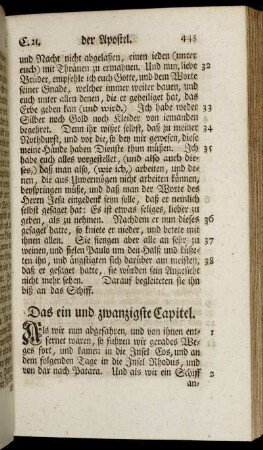 C. 21. der Apostel. 445
und Nacht nicht abgelassen, einen jeden (unter
euch) mit Thränen zu ermahnen. Und nun, liebe 32
Brüder, empfehle ich euch Gotte, und dem Worte
seiner Gnade, welcher immer weiter bauen, und
euch unter allen denen, die er geheiliget hat, das
Erbe geben kan (und wird.) Ich habe weder 33
Silber noch Gold noch Kleider von iemanden
begehret. Denn ihr wisset selbst, daß zu meiner 34
Nothdurft, und vor die, so bey mir gewesen, diese
meine Hände haben Dienste thun müssen. Ich 35
habe euch alles vorgestellet, (und also auch die-
ses,) daß man also, (wie ich,) arbeiten, und de-
nen, die aus Unvermögen nicht arbeiten können,
beyspringen müsse, und daß man der Worte des
Herrn Jesu eingedenk seyn solle, daß er nemlich
selbst gesaget hat: Es ist etwas seliges, lieber zu
geben, als zu nehmen. Nachdem er nun dieses 36
gesaget hatte, so kniete er nieder, und betete mit
ihnen allen. Sie fiengen aber alle an sehr zu 37
weinen, und fielen Paulo um den Halß und küße-
ten ihn, und ängstigten sich darüber am meisten, 38
daß er gesaget hatte, sie würden sein Angesicht
nicht mehr sehen. Darauf begleiteten sie ihn
biß an das Schiff.
Das ein und zwanzigste Capitel.
Als wir nun abgefahren, und von ihnen ent- 1
fernet waren, so fuhren wir gerades We-
ges fort, und kamen in die Insel Cos, und an
dem folgenden Tage in die Insel Rhodus, und
von dar nach Patara. Und als wir ein Schiff 2
an-